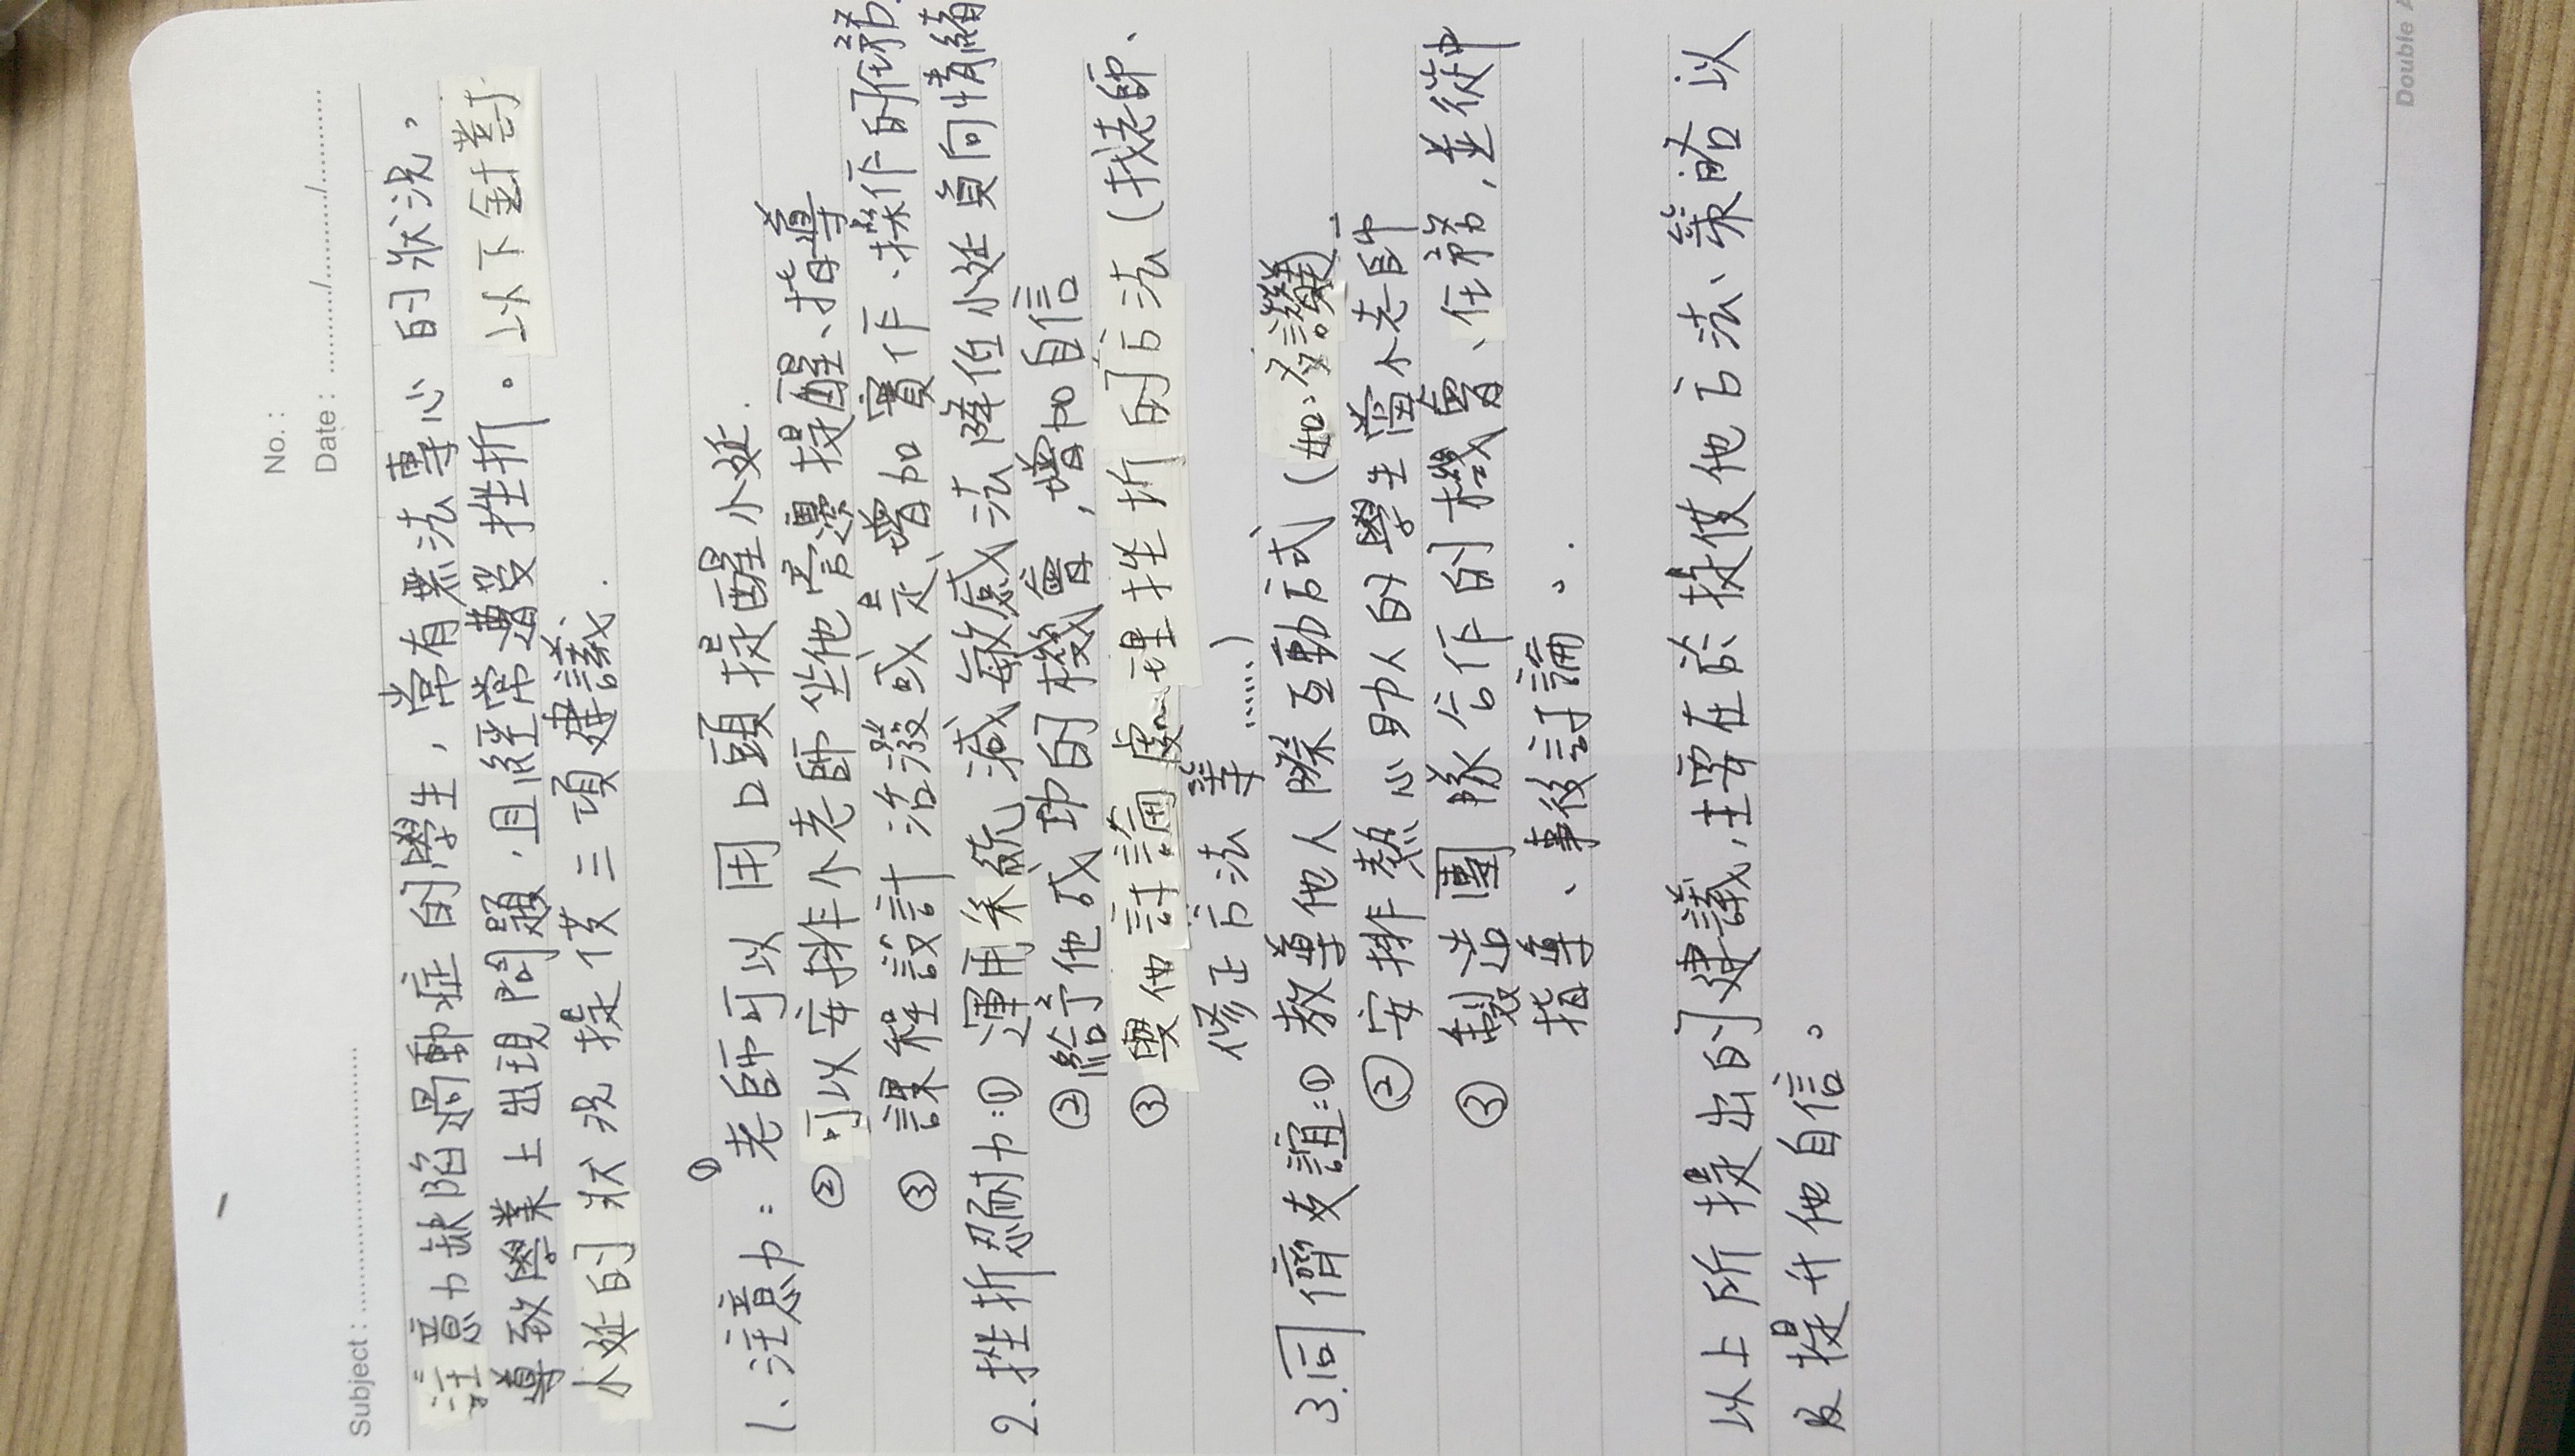 No.:
Date: ........./........./.........
Subject: ..............................
注意力缺陷過動症的學生，常有無法專心的狀況，
導致學業上出現問題，且經常遭受挫折。以下針對
小延的狀況提供三項建議.
1、注意力：①老師可以用口頭提醒小延.
②可以安排小老師坐他旁邊提醒、指導
③課程設計活潑或是、增加實作、操作的任務.
2.挫折忍耐力:①運用系統減敏感法降低小延負向情緒
②給予他成功的機會，增加自信
③與他討論處理挫折的方法(找老師、
修正方法等......)
3.同儕友誼:①教導他人際互動方式(如:多讚美)
②安排熱心助人的學生當小老師
③製造團隊合作的機會、任務,並從中
指導、事後討論。.
以上所提出的建議,主要在於提供他方法、策略以
及提升他自信。
Double A